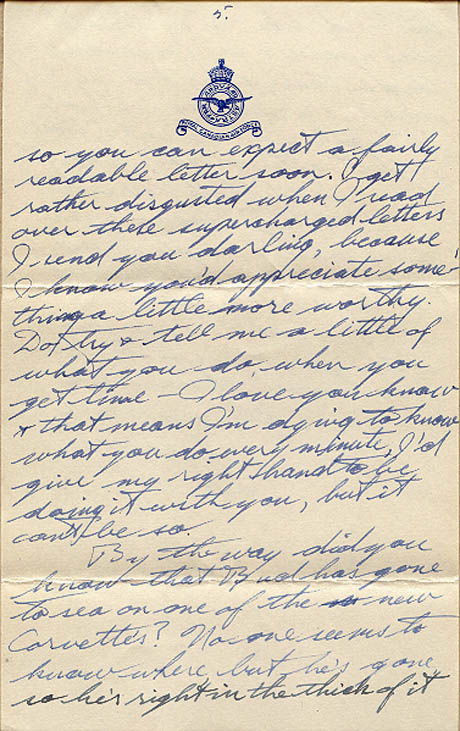 5.
ROYAL CANADIAN AIR FORCE
so you can expect a fairly
readable letter soon. I get
rather disgusted when I read
over these supercharged letters
I send you darling, because
I know you'd appreciate some-
thing a little more worthy.
Do try & tell me a little of
what you do, when you
get time – I love you know
& that means I'm dying to know
what you do every minute, I'd
give my right hand to be
doing it with you, but it
can't be so.
By the way did you
know that Bud has gone
to sea on one of the new
Corvettes? No one seems to
know where, but he's gone,
so he's right in the thick of it